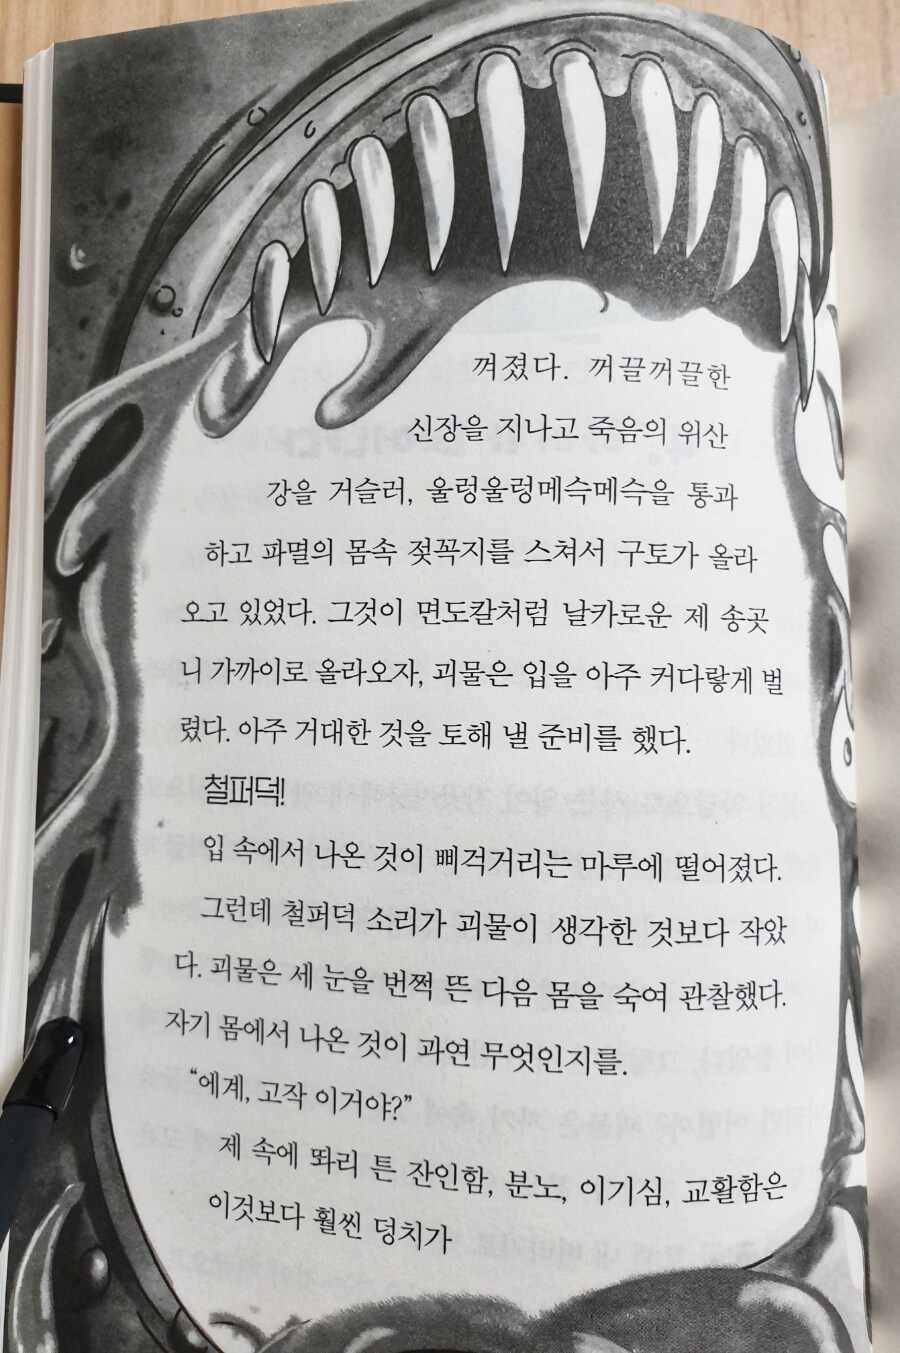 꺼졌다. 꺼끌꺼끌한
신장을 지나고 죽음의 위산
강을 거슬러, 울렁울렁메슥메슥을 통과
하고 파멸의 몸속 젖꼭지를 스쳐서 구토가 올라
오고 있었다. 그것이 면도칼처럼 날카로운 제 송곳
니 가까이로 올라오자, 괴물은 입을 아주 커다랗게 벌
렸다. 아주 거대한 것을 토해 낼 준비를 했다.
철퍼덕!
입 속에서 나온 것이 삐걱거리는 마루에 떨어졌다.
그런데 철퍼덕 소리가 괴물이 생각한 것보다 작았
다. 괴물은 세 눈을 번쩍 뜬 다음 몸을 숙여 관찰했다.
자기 몸에서 나온 것이 과연 무엇인지를.
“에계, 고작 이거야?”
제 속에 똬리 튼 잔인함, 분노, 이기심, 교활함은
이것보다 훨씬 덩치가